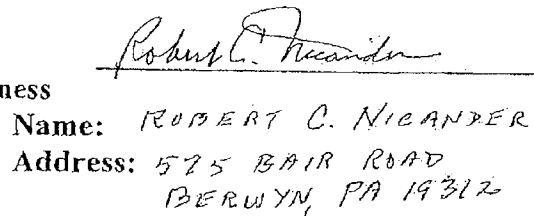 Robert C. Nicander
ness
Name: ROBERT C. NICANDER
Address: 575 BAIR ROAD
BERWYN, PA 19312